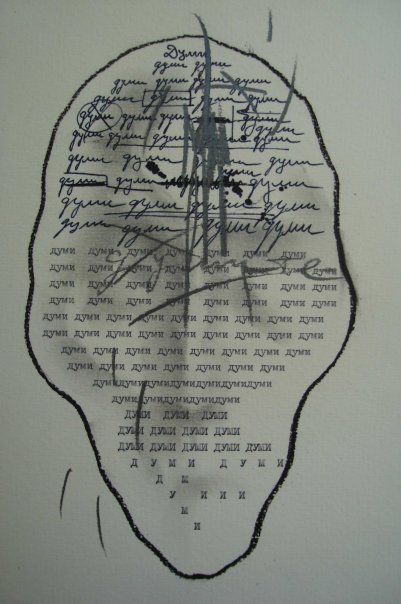 Думи
думи думи
думи думи думи думи
думи думи думи думи
думи думи думи думи думи
думи думи думи думи думи
думи думи думи думи
думи думи думи
думи думи думи думи
думи думи думи думи
думи думи думи думи думи думи думи
думи думи думи думи думи думи думи думи
думи думи думи думи думи думи думи думи
думи думи думи думи думи думи думи думи
думи думи думи думи думи думи думи думи
думи думи думи думи думи думи думи думи
думи думи думи думи думи думи думи
думи думи думи думи думи думи думи
думидумидумидумидумидумидуми
думидумидумидумидуми
ДУМИ ДУМИ ДУМИ
ДУМИ ДУМИ ДУМИ ДУМИ
ДУМИ ДУМИ ДУМИ ДУМИ ДУМИ
Д У М И Д У М И
Д М
У И И И
М
И